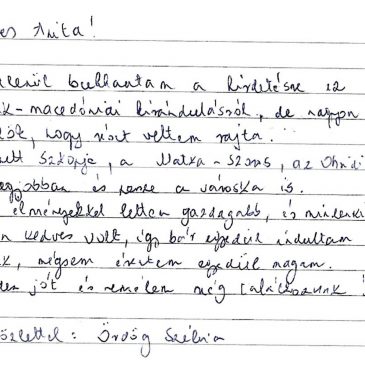 es Anita!
lenül bukkantam a hirdetésre iz
k-macedóniai kirándulásról, de nagyon
lök, hogy részt vettem rajta.
ett Szkopje, a Matka-szoros, az Ohridi
egjobban és persze a városka is.
élményekkel lettem gazdagabb, és mindenki
n kedves volt, így bár egyedül indultam
k, mégsem éreztem egyedül magam.
den jót és remélem még találkozunk!
özlettel: Ördög Szilvia